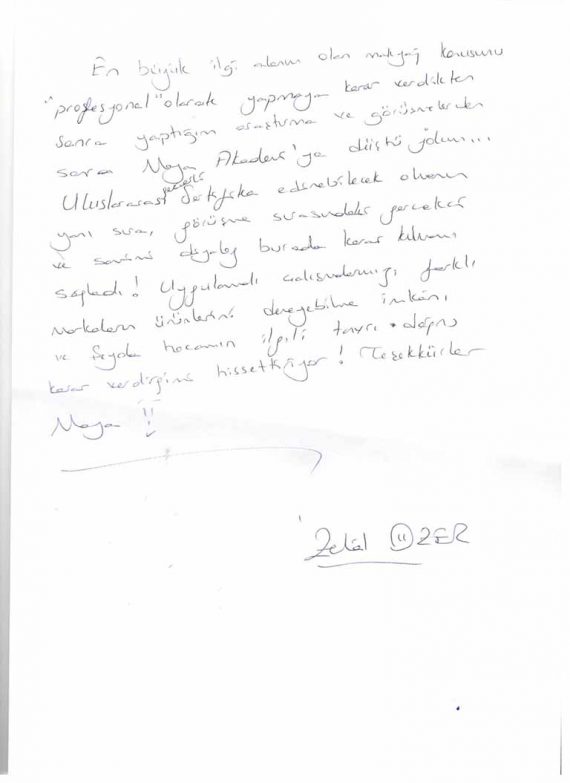 En büyük ilgi alanım olan makyaj konusunu
"profesyonel" olarak yapmaya karar verdikten
sonra yaptığım araştırma ve görüşmelerden
sonra Maya Akademi'ye düştü yolum...
Uluslararası geçerli sertifika edinebilecek olmanın
yanı sıra, görüşme sırasındaki gerçekçi
ve samimi diyalog burada karar kılmamı
sağladı! Uygulamalı çalışmalarımızı farklı
markaların ürünlerini deneyebilme imkanı
ve Feyda hocamın ilgili tavrı doğru
karar verdiğimi hissettiriyor! Teşekkürler
Maya !!
Zelal ÖZER